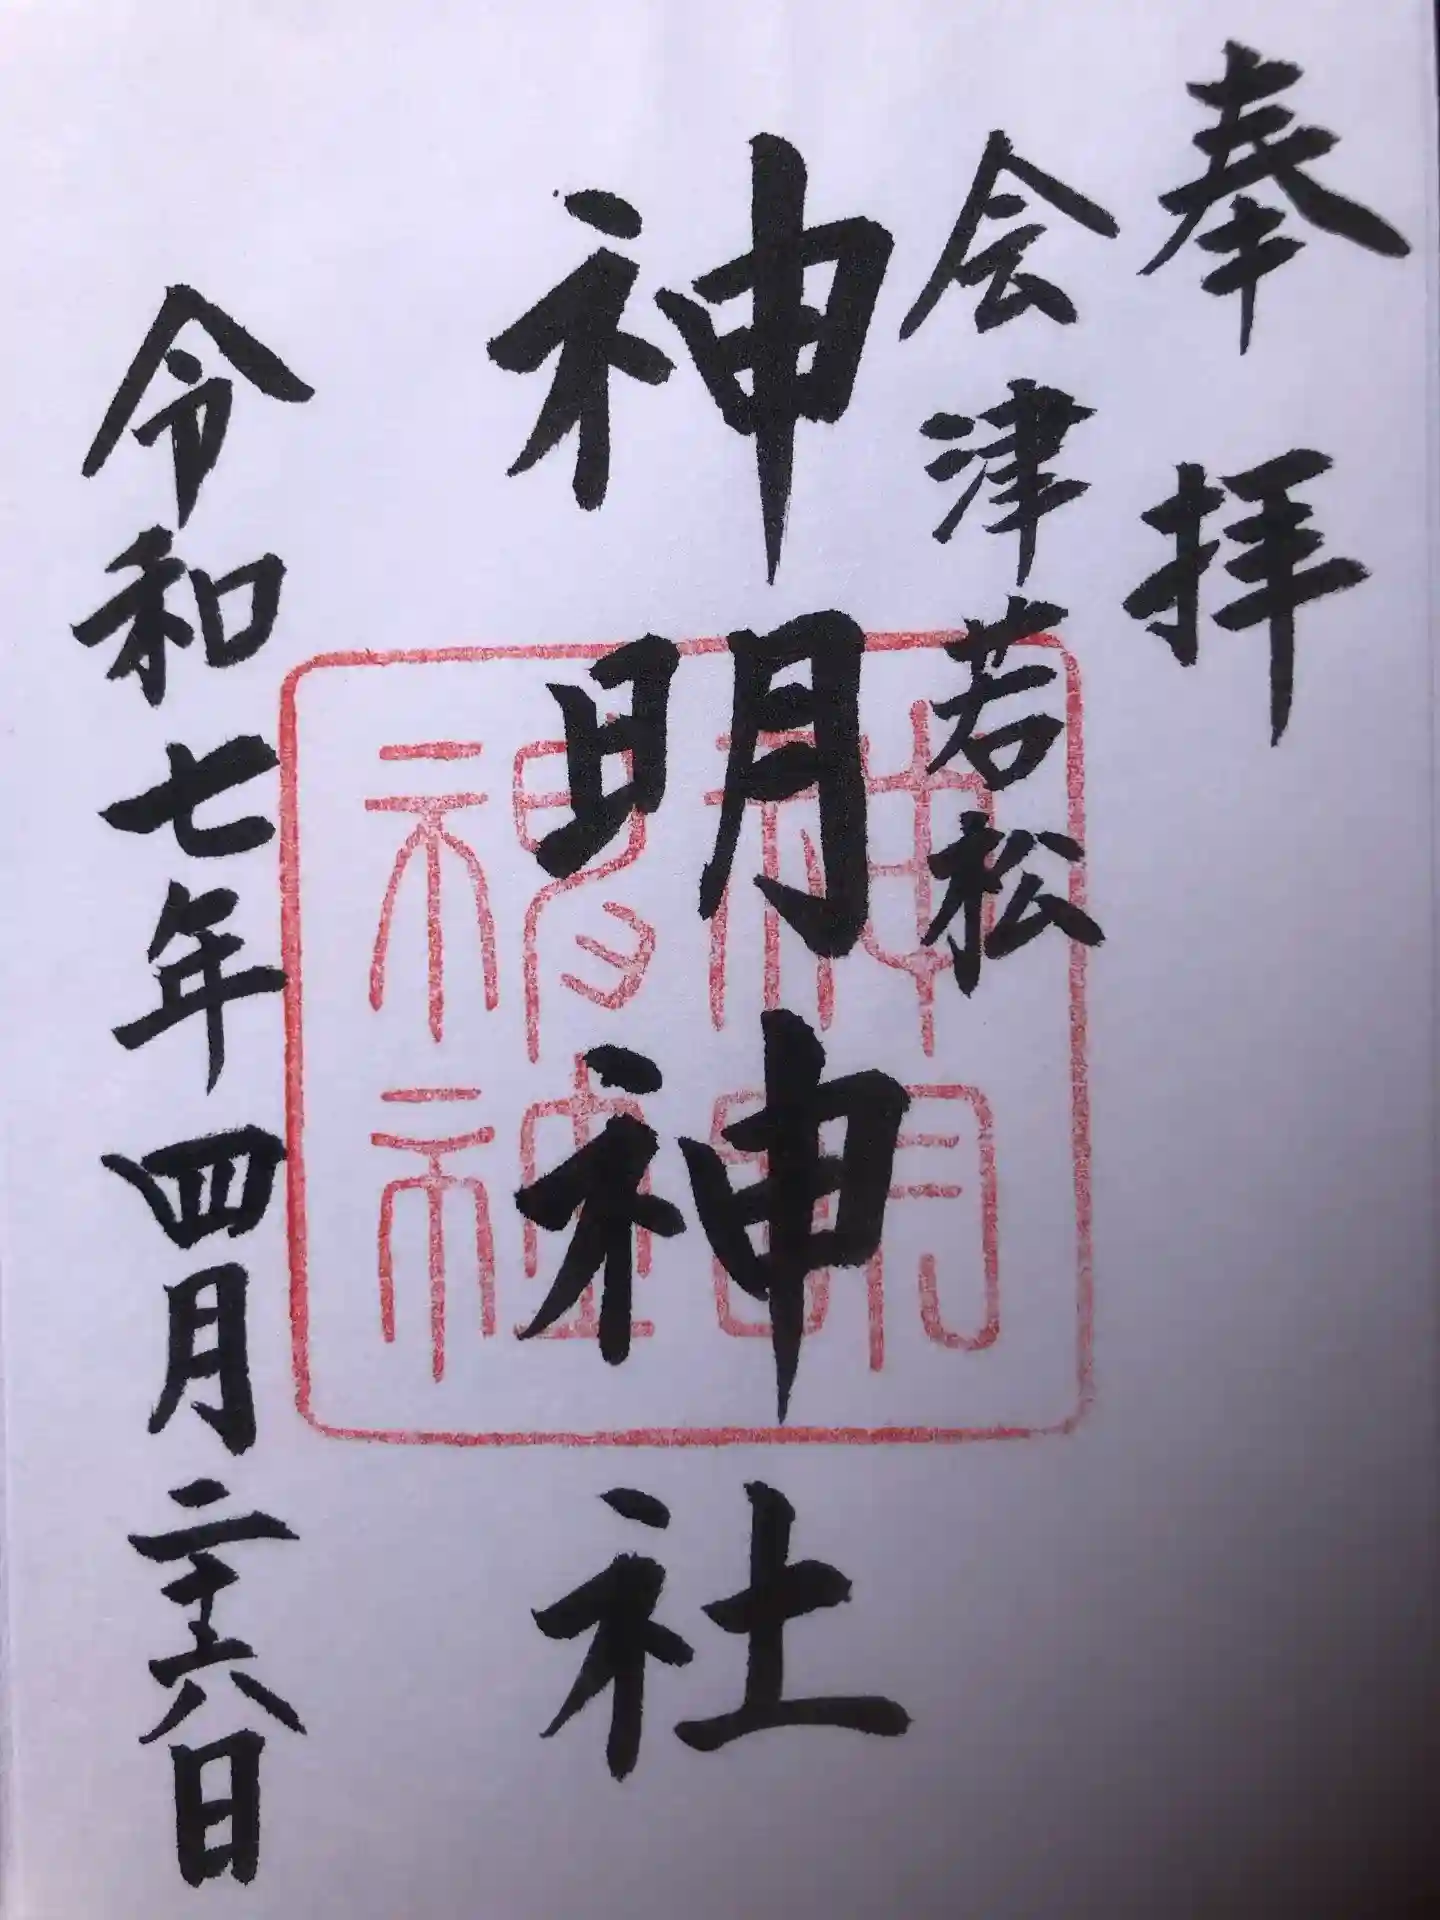 奉拝
会津若松
神明神社
令和七年四月二十六日